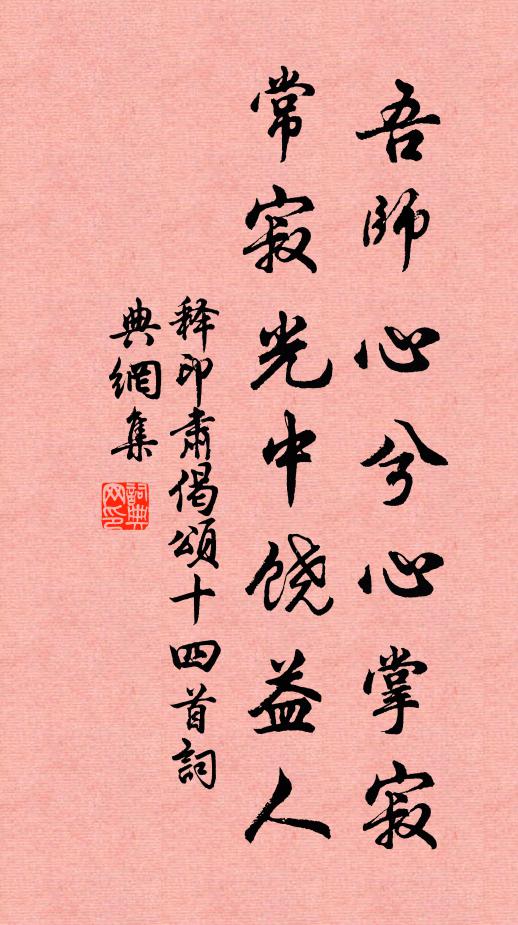 吾師心兮心掌寂
常寂光中饶益人
释印肅偈頌十四首詞
典網集
詞典网印